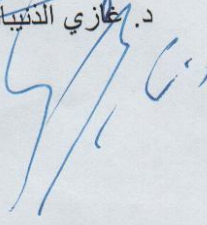 د. غازي الذنيبا